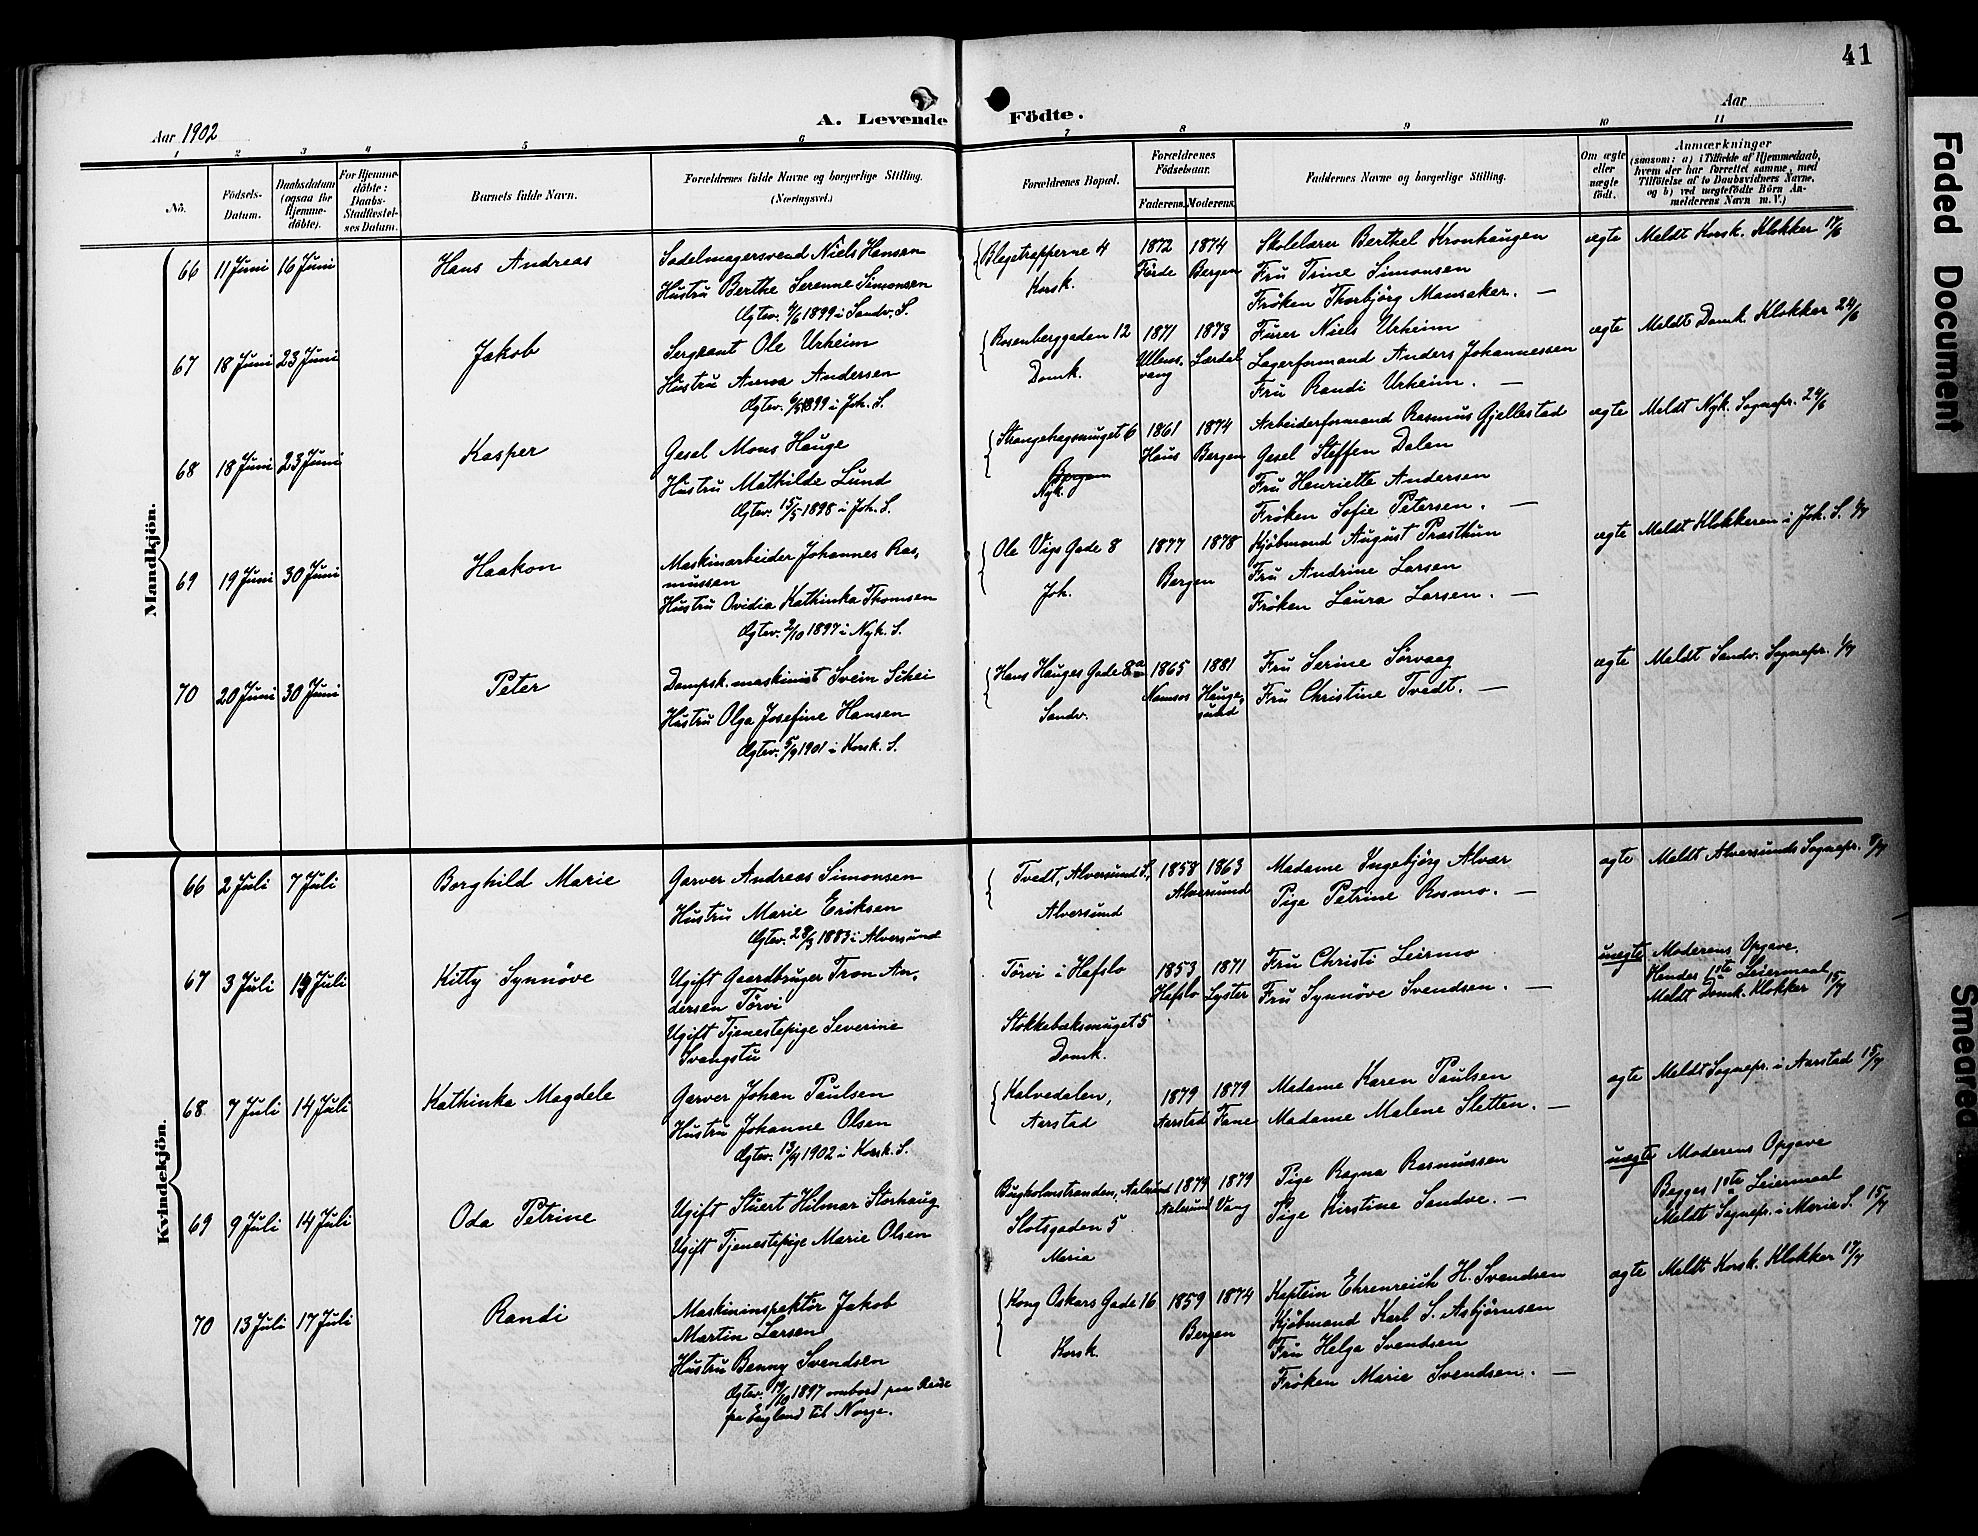 41
Aar 1902
A. Levende Födte.
Aar
1 2 3 4 5 6 7 8 9 10 11
No.
Födsels-Datum.
Daabsdatum (ogsaa for Hjemme-döbte).
For Hjemme-döbte: Daabs-Stadfæstel-ses Datum.
Barnets fulde Navn.
Forældrenes fulde Navne og borgerlige Stilling. (Næringsvei.)
Forældrenes Bopæl.
Forældrenes Födselsaar.
Faderens. Moderens.
Faddernes Navne og borgerlige Stilling.
Om ægte eller uægte födt.
Anmærkninger (saasom: a) i Tilfælde af Hjemmedaab, hvem der har forrettet samme, med Tilföielse af to Daabsvidners Navne, og b) ved uægtefödte Börn An-melderens Navn m. V.)
Mandkjön.
66 11 Juni 16 Juni Hans Andreas
Sadelmagersvend Niels Hansen
Hustru Berthe Serenne Simonsen
Ægtev. 4/6 1899 i Sandv. S.
Blegetrapperne 4
Korsk.
1872 Förde 1874 Bergen
Skolelærer Berthel Kronhaugen
Fru Trine Simonsen
Frøken Thorbjörg Mansaker. —
ægte Meldt Korsk. Klokker 17/6
67 18 Juni 23 Juni Jakob
Sergeant Ole Urheim
Hustru Anna Andersen
Ægtev. 6/5 1899 i Joh. S.
Rosenberggaden 12
Domk.
1871 Ullens-vang 1873 Lærdal
Furer Niels Urheim
Lagerformand Anders Johannessen
Fru Randi Urheim. —
ægte Meldt Domk. Klokker 24/6
68 18 Juni 23 Juni Kasper
Gesel Mons Hauge
Hustru Mathilde Lund
Ægtev. 15/5 1898 i Joh. S.
Strangehagsmuget 6
Bergen
Nyk.
1861 Haus 1874 Bergen
Arbeiderformand Rasmus Gjellestad
Gesel Steffen Dalen
Fru Henriette Andersen
Frøken Sofie Petersen. —
ægte Meldt Nyk. Sognepr. 24/6
69 19 Juni 30 Juni Haakon
Maskinarbeider Johannes Ras-
mussen
Hustru Ovidia Kathinka Thomsen
Ægtev. 2/10 1897 i Nyk. S.
Ole Vigs Gade 8
Joh.
1877 1878 Bergen
Kjöbmand August Prasthun
Fru Andrine Larsen
Frøken Laura Larsen. —
ægte Meldt Klokkeren i Joh. S. 1/7
70 20 Juni 30 Juni Peter
Dampsk. maskinist Svein Sikei
Hustru Olga Josefine Hansen
Ægtev. 5/9 1901 i Korsk. S.
Hans Hauges Gade 8 a
Sandv.
1865 Namsos 1881 Hauge-sund
Fru Serine Sørvaag
Fru Christine Tvedt. —
ægte Meldt Sandv. Sognepr. 1/7
Kvindekjön.
66 2 Juli 7 Juli Borghild Marie
Garver Andreas Simonsen
Hustru Marie Eriksen
Ægtev. 28/3 1883 i Alversund
Tvedt, Alversund S.,
Alversund
1858 1863 Alversund
Madame Ingebjørg Alvær
Pige Petrine Rosmo. —
ægte Meldt Alversunds Sognepr. 8/7
67 3 Juli 13 Juli Kitty Synnöve
Ugift Gaardbruger Tron An-
dersen Törvi
Ugift Tjenestepige Severine
Svangstu
Törvi i Hafslo
Stokkebæksmuget 5
Domk.
1853 Hafslo 1871 Lyster
Fru Christi Leirmo
Fru Synnöve Svendsen. —
uægte Moderens Opgave.
Hendes 1ste Leiermaal
Meldt Domk. Klokker 15/7
68 7 Juli 14 Juli Kathinka Magdele
Garver Johan Paulsen
Hustru Johanne Olsen
Ægtev. 13/4 1902 i Korsk. S.
Kalvedalen,
Aarstad
1879 Aarstad 1879 Fane
Madame Karen Paulsen
Madame Malene Sletten. —
ægte Meldt Sognepr. i Aarstad 15/7
69 9 Juli 14 Juli Oda Petrine
Ugift Stuert Hilmar Storhaug
Ugift Tjenestepige Marie Olsen
Bugholmstranden, Aalesund
Slotsgaden 5
Maria
1879 Aalesund 1879 Vang
Pige Ragna Rasmussen
Pige Kirstine Sandve. —
uægte Moderens Opgave
Begges 1ste Leiermaal
Meldt Sognepr. i Maria S. 15/7
70 13 Juli 17 Juli Randi
Maskininspektör Jakob
Martin Larsen
Hustru Benny Svendsen
Ægtev. 19/10 1897 ombord paa Reise
fra England til Norge.
Kong Oskars Gade 16
Korsk.
1859 1874 Bergen
Kaptein Ehrenreich H. Svendsen
Kjöbmand Karl S. Asbjörnsen
Fru Helga Svendsen
Frøken Marie Svendsen. —
ægte Meldt Korsk. Klokker 17/7
Faded Document
Smeared